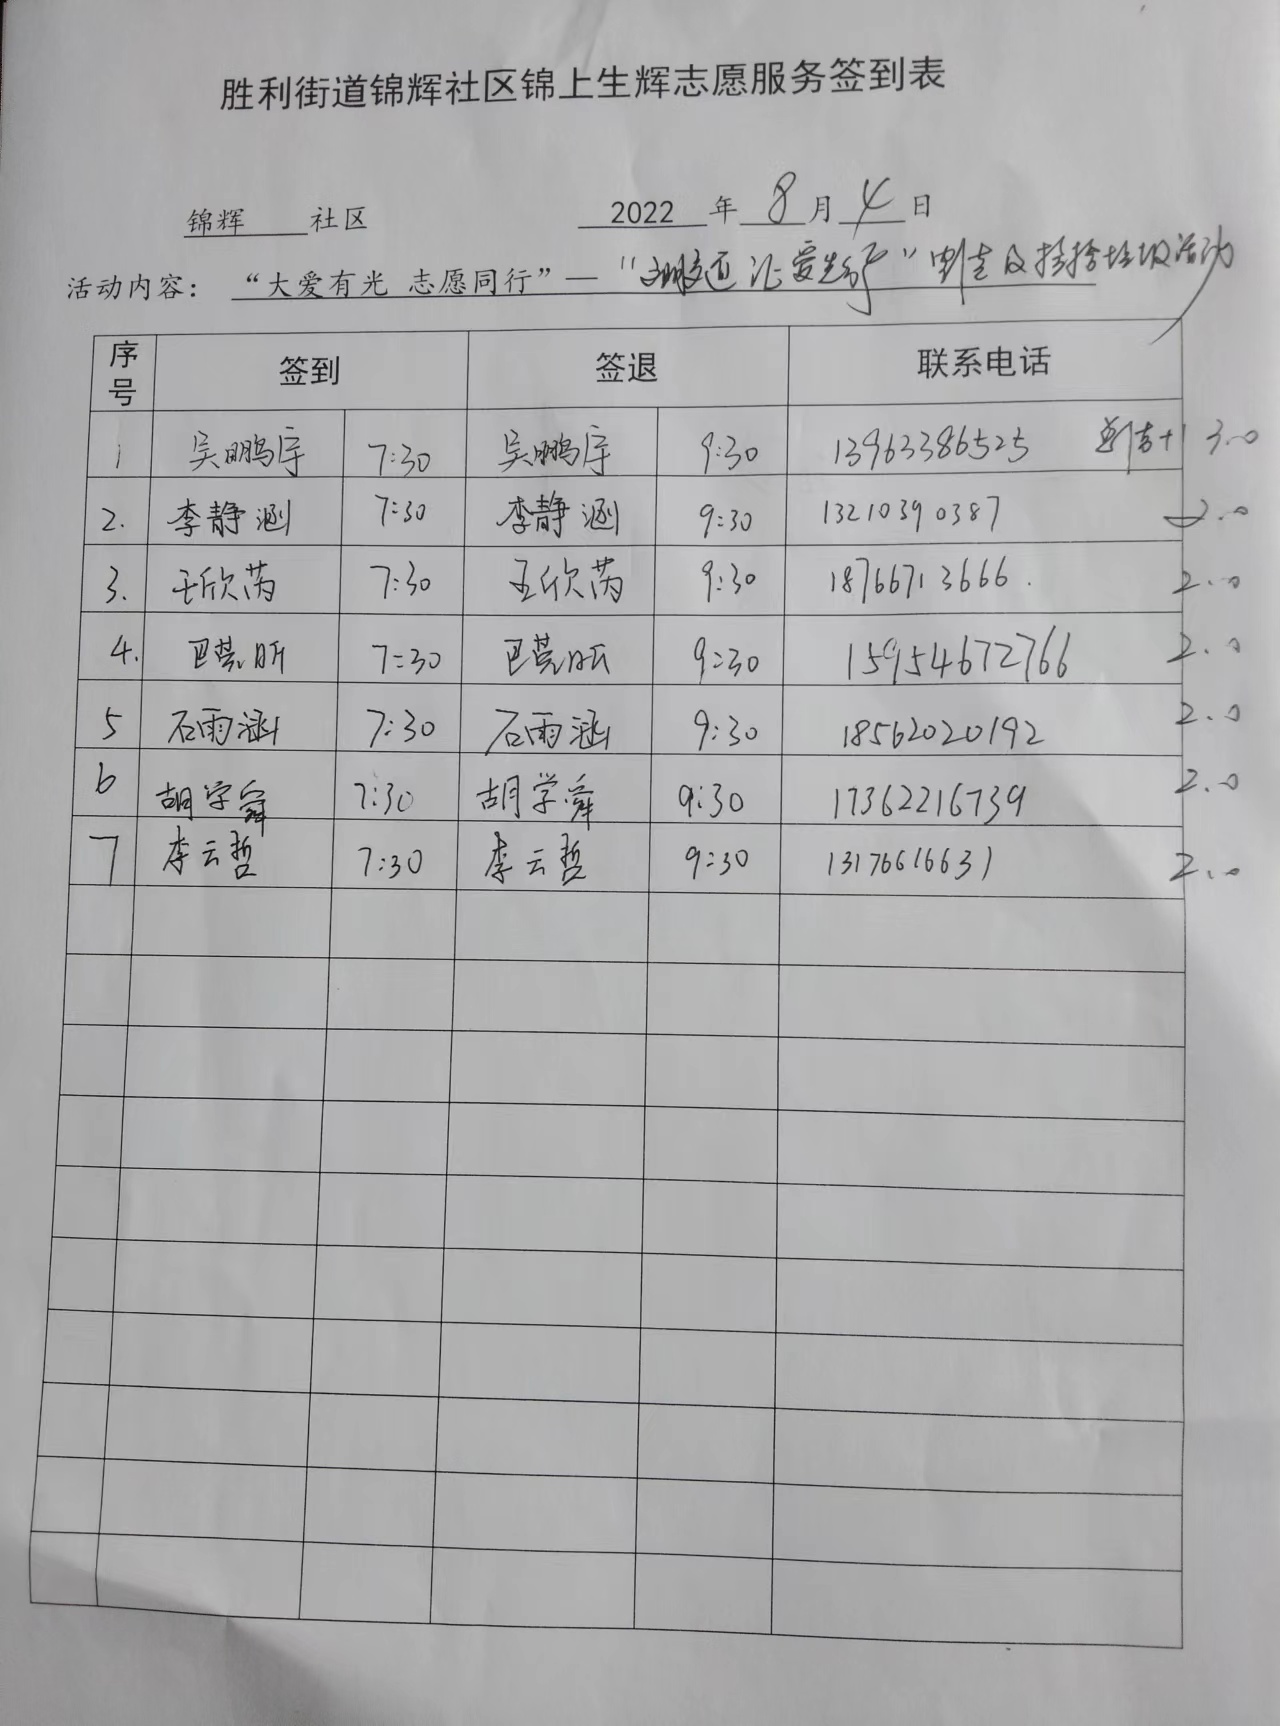 胜利街道锦辉社区锦上生辉志愿服务签到表
锦辉 社区 2022 年 8 月 4 日
活动内容：“大爱有光 志愿同行”—“文明交通 让爱先行”割草及捡拾垃圾活动
序号 签到 签退 联系电话
1 吴鹏宇 7:30 吴鹏宇 9:30 13963386525 +1 3.0
2. 李静涵 7:30 李静涵 9:30 13210390387 2.0
3. 王欣芮 7:30 王欣芮 9:30 18766713666. 2.0
4. 7:30 9:30 15954672766 2.0
5 石雨涵 7:30 石雨涵 9:30 18562020192 2.0
6 胡学舜 7:30 胡学舜 9:30 17362216739 2.0
7 李云哲 7:30 李云哲 9:30 13176616631 2.0